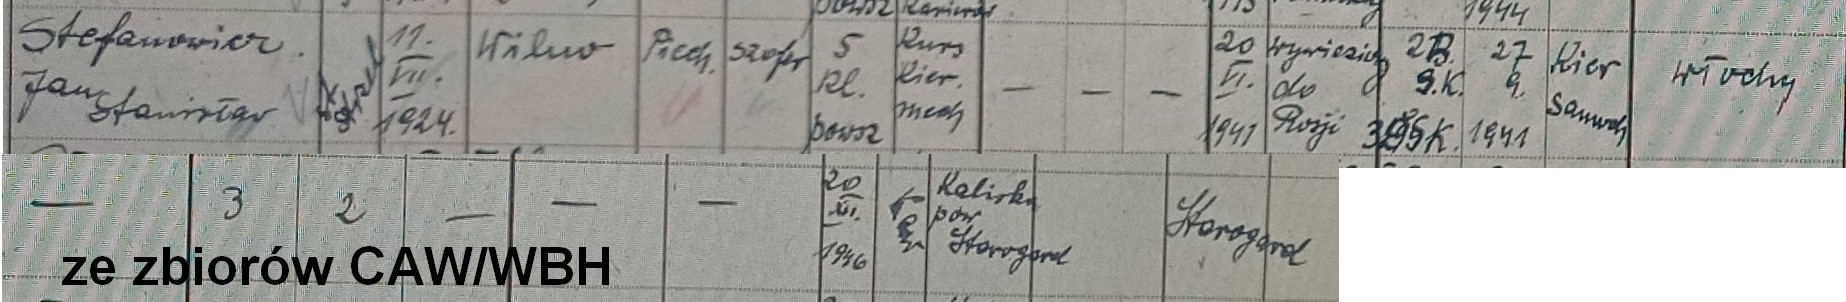 powsz kanierow
113 1944
Stefanowicz Jan Stanisław
strzel
11. VII. 1924.
Wilno
Piech.
szofer
5 kl. powsz
Kurs kier. mech
— — —
20 VI. 1941
wywiezion do Rosji
2B. S.K.
27 9. 1941
Kier Samoch
Włochy
— 3 2 — — —
20 XII. 1946
Kaliska pow Starogard
Starogard
ze zbiorów CAW/WBH